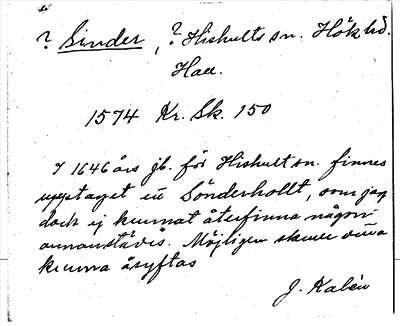 ? Sinder, ? Hishults sn. Hök hd.
Hall.
1574 Kr. Sk. 150
I 1646 års jb. för Hishult sn. finnes
upptaget ett Sönderhollt, som jag
dock ej kunnat återfinna någon-
annanstädes. Möjligen skulle detta
kunna åsyftas
J. Kalén